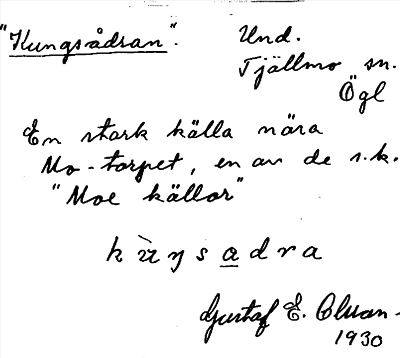 "Kungsådran".
Und.
Tjällmo sn.
Ögl
En stark källa nära
Mo-torpet, en av de s.k.
"Moe källor"
kùŋsadra
Gustaf E. Olsson
1930